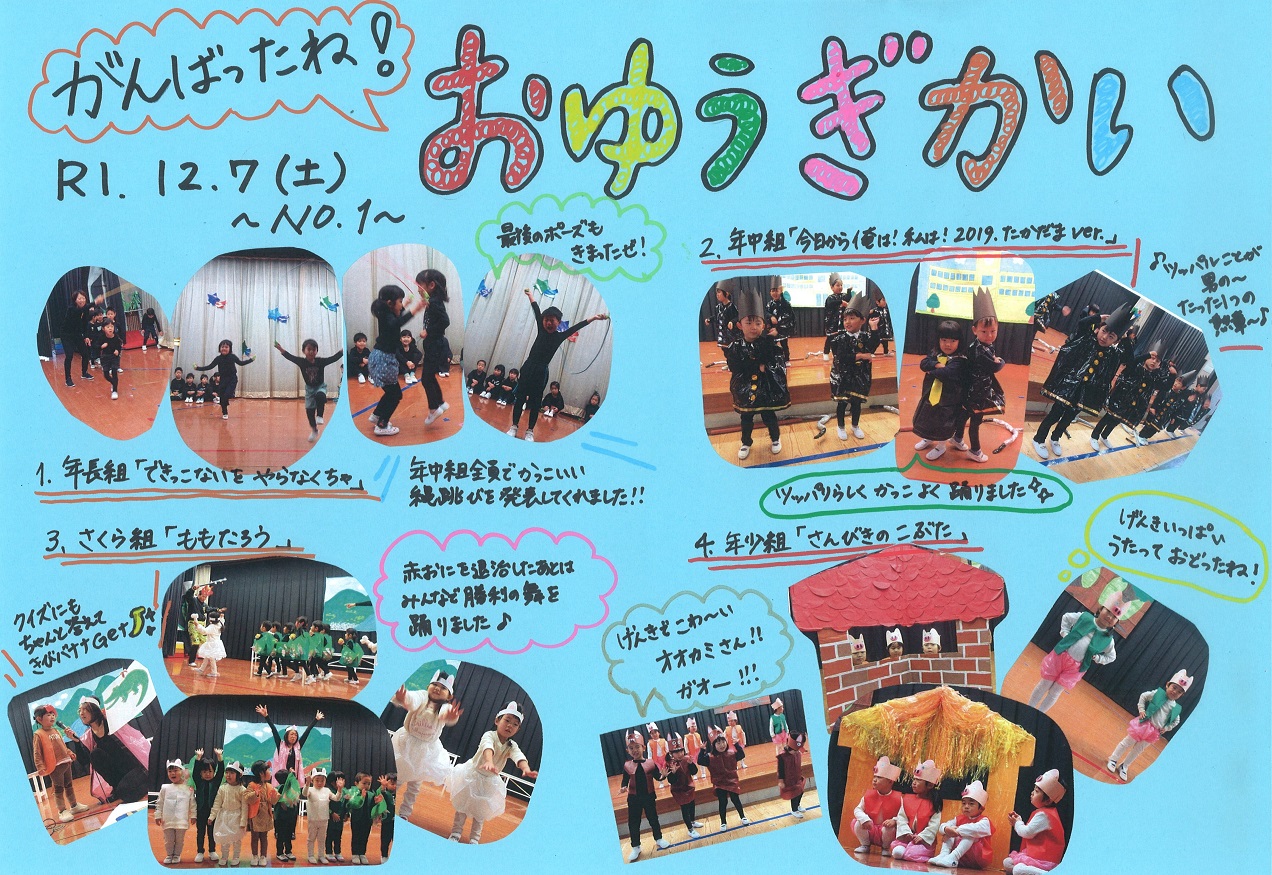 がんばったね!
おゆうぎかい
R1. 12.7(土)
~NO.1~
最後のポーズも
きまったぜ!
1. 年長組「できっこないを やらなくちゃ」
年中組全員でかっこいい
縄跳びを発表してくれました!!
2. 年中組「今日から俺は!私は!2019.たかだまver.」
♪ツッパルことが
男の~
たった1つの
勲章~♪
ツッパリらしく かっこよく 踊りました☆☆
3. さくら組「ももたろう」
クイズにも
ちゃんと答えて
きびバナナGet!!
赤おにを退治したあとは
みんなで勝利の舞を
踊りました♪
4. 年少組「さんびきのこぶた」
げんきいっぱい
うたって おどったね!
げんきでこわ~い
オオカミさん!!
ガオー!!!